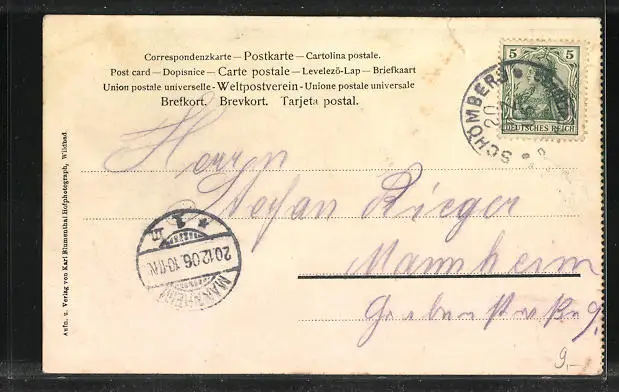 Correspondenzkarte – Postkarte – Cartolina postale.
Post card – Dopisnice – Carte postale – Levelező-Lap – Briefkaart
Union postale universelle – Weltpostverein – Unione postale universale
Brefkort. Brevkort. Tarjeta postal.
5 5
DEUTSCHES REICH
SCHÖMBERG
20
Herrn
Stefan Rieger
Mannheim
9.
MANNHEIM
20.12.06. 10-11 N.
* 1 m
Aufn. u. Verlag von Karl Blumenthal Hofphotograph, Wildbad.
9,-